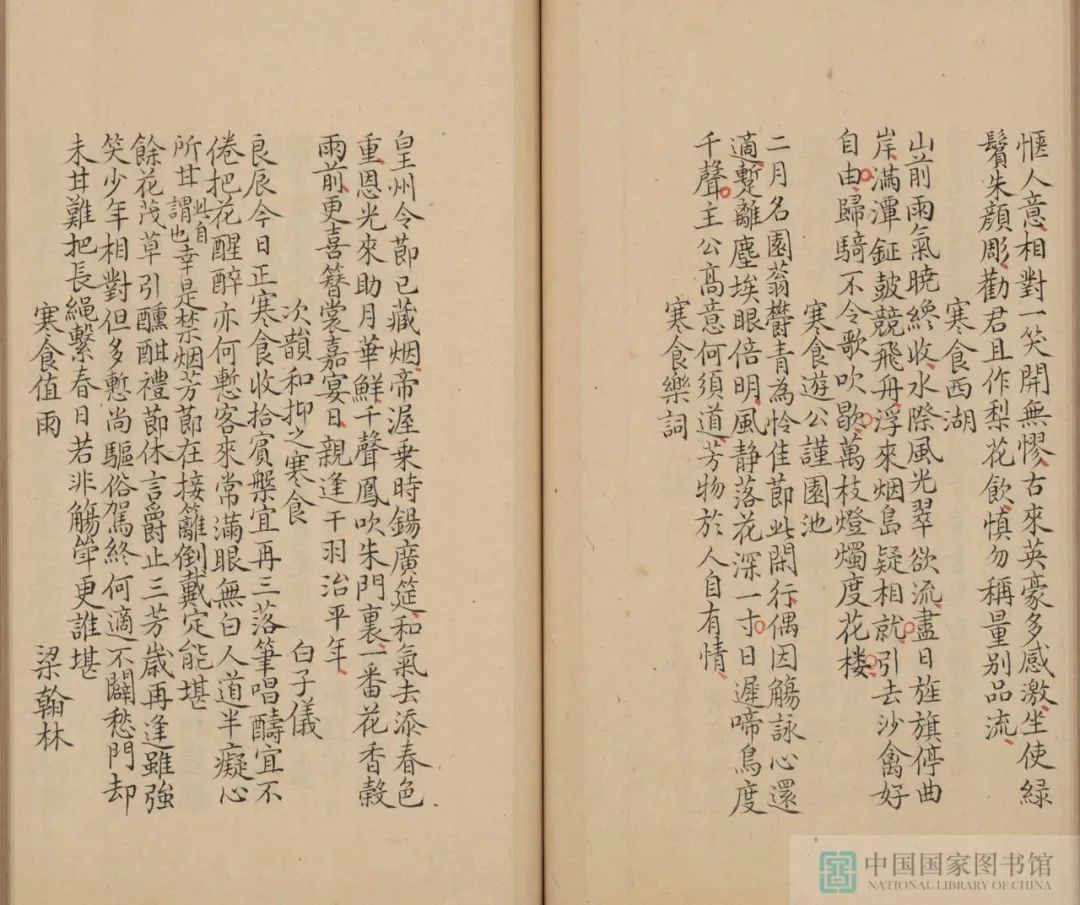 愜人意相對一笑開無憀古來英豪多感激坐使緑
鬢朱顔彫勸君且作梨花飲慎勿稱量别品流
寒食西湖
山前雨氣曉纔收水際風光翠欲流盡日旌旗停曲
岸滿潭鉦鼓競飛舟浮來烟島疑相就引去沙禽好
自由歸騎不令歌吹歇萬枝燈燭度花楼
寒食遊公謹園池
二月名園蓊欝青為怜佳節此閑行偶因觴詠心還
適蹔離塵埃眼倍明風静落花深一寸日遲啼鳥度
千聲主公高意何須道芳物於人自有情
寒食樂詞
皇州令節已藏烟帝渥乗時錫廣筵和氣去添春色
重恩光來助月華鮮千聲鳳吹朱門裏一番花香縠
雨前更喜簪裳嘉宴日親逢干羽治平年
次韻和抑之寒食 白子儀
良辰今日正寒食收拾賓槃宜再三落筆唱醻宜不
倦把花醒醉亦何慙客來常滿眼無白人道半癡心
所甘此自謂也幸是禁烟芳節在接籬倒戴定能堪
餘花茂草引醺酣禮節休言爵止三芳歳再逢雖強
笑少年相對但多慙尚驅俗駕終何適不闢愁門却
未甘難把長繩繫春日若非觴斝更誰堪
寒食值雨 梁翰林
中国国家图书馆
NATIONAL LIBRARY OF CHINA